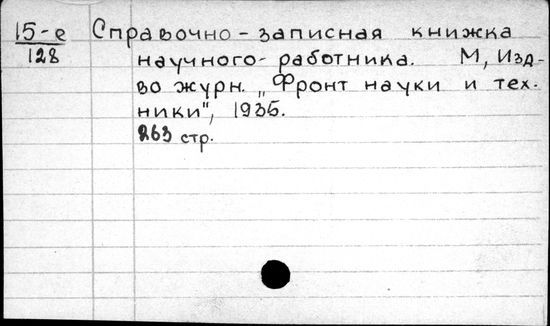 15-е Справочно-записная книжка
128 научного-работника. М, Изд-
во журн. „Фронт науки и тех-
ники", 1935.
263 стр.